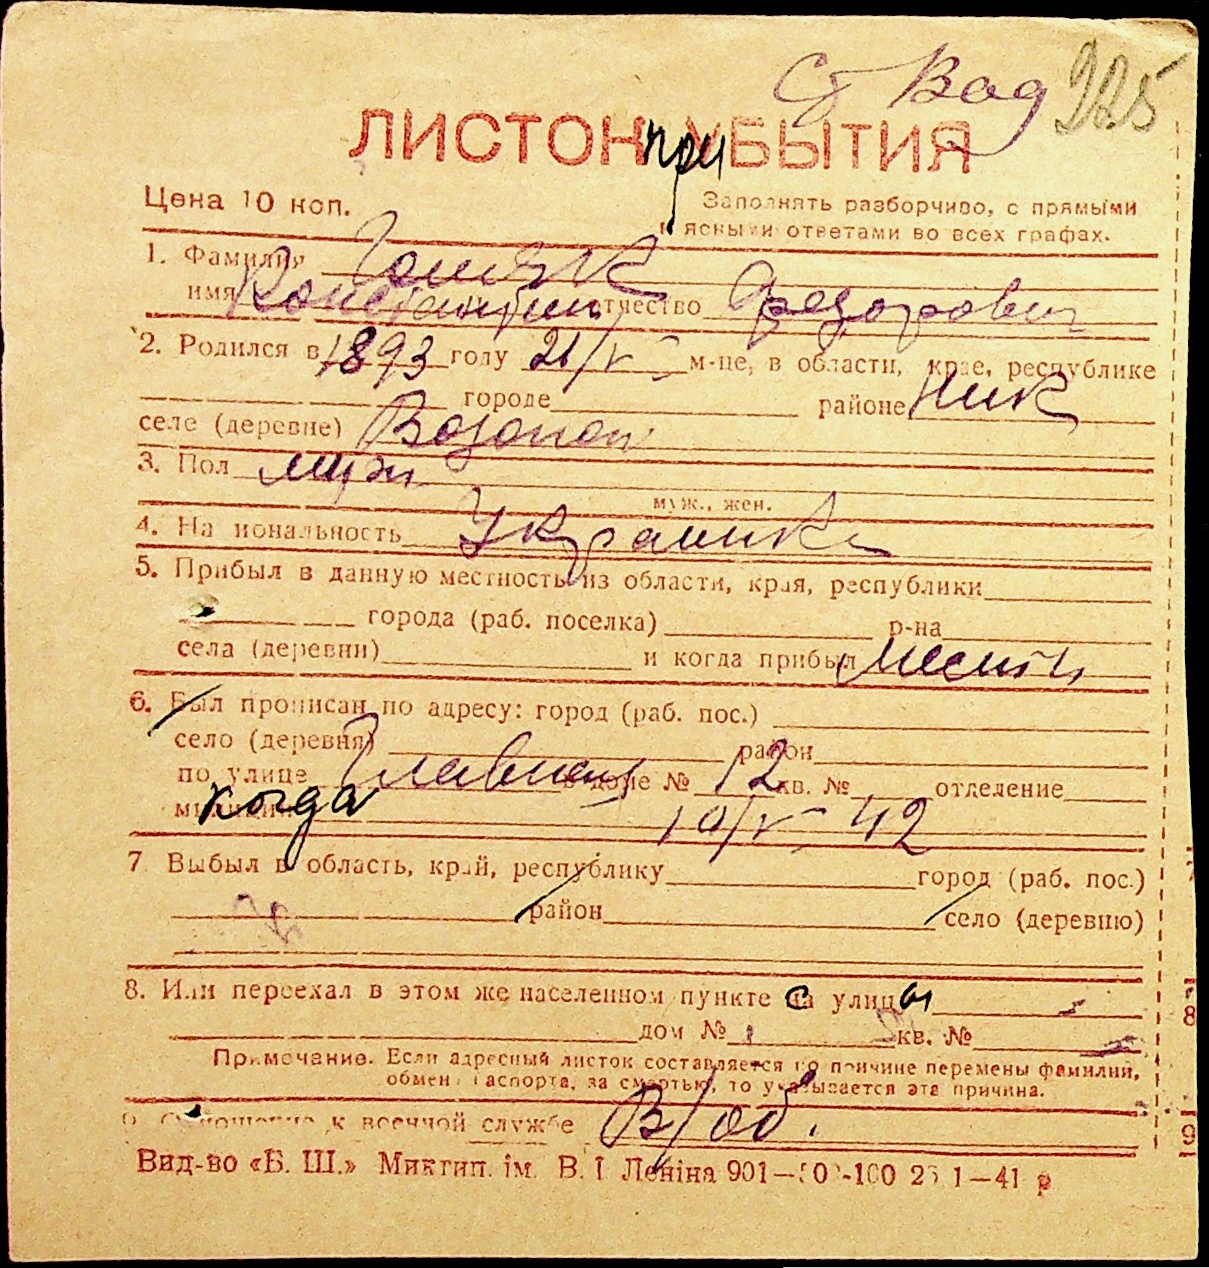 Ст Вод 225
ЛИСТОК при БЫТИЯ
Цена 10 коп.
Заполнять разборчиво, с прямыми
и ясными ответами во всех графах.
1. Фамилия
имя Константин отчество Федорович
2. Родился в 1893 году 21/V м-це, в области, крае, республике
городе районе Ник
селе (деревне) Водопой
3. Пол муж
муж., жен.
4. Национальность Украинец
5. Прибыл в данную местность из области, края, республики
города (раб. поселка) р-на
села (деревни) и когда прибыл местн
6. Был прописан по адресу: город (раб. пос.)
село (деревня) район
по улице Главная в доме № 12 кв. № отделение
милиции когда 10/V 42
7. Выбыл в область, край, республику город (раб. пос.)
район село (деревню)
8. Или переехал в этом же населенном пункте с улицы
дом № кв. №
Примечание. Если адресный листок составляется по причине перемены фамилии,
обмена паспорта, за смертью, то указывается эта причина.
9. Отношение к военной службе В/об.
Вид-во «Б. Ш.» Миктип. ім. В. І Леніна 901—50 -100 1—41 р
8
9